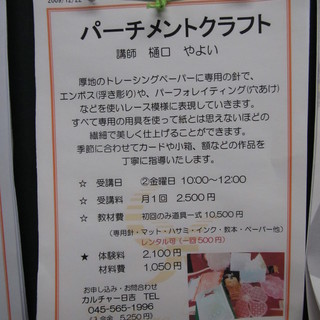 2009/12/22
パーチメントクラフト
講師 樋口 やよい
厚地のトレーシングペーパーに専用の針で、
エンボス(浮き彫り)や、パーフォレイティング(穴あけ)
などを使いレース模様に表現していきます。
すべて専用の用具を使って紙とは思えないほどの
繊細で美しく仕上げることができます。
季節に合わせてカードや小箱、額などの作品を
丁寧に指導いたします。
☆ 受講日 ②金曜日 10:00~12:00
☆ 受講料 月1回 2,500円
☆ 教材費 初回のみ道具一式 10,500円
(専用針・マット・ハサミ・インク・教本・ペーパー他)
レンタル可(一回500円)
★ 体験料 2,100円
材料費 1,050円
お申し込み・お問合わせ
カルチャー日吉 TEL
045-565-1996
(入会金 5,250円)